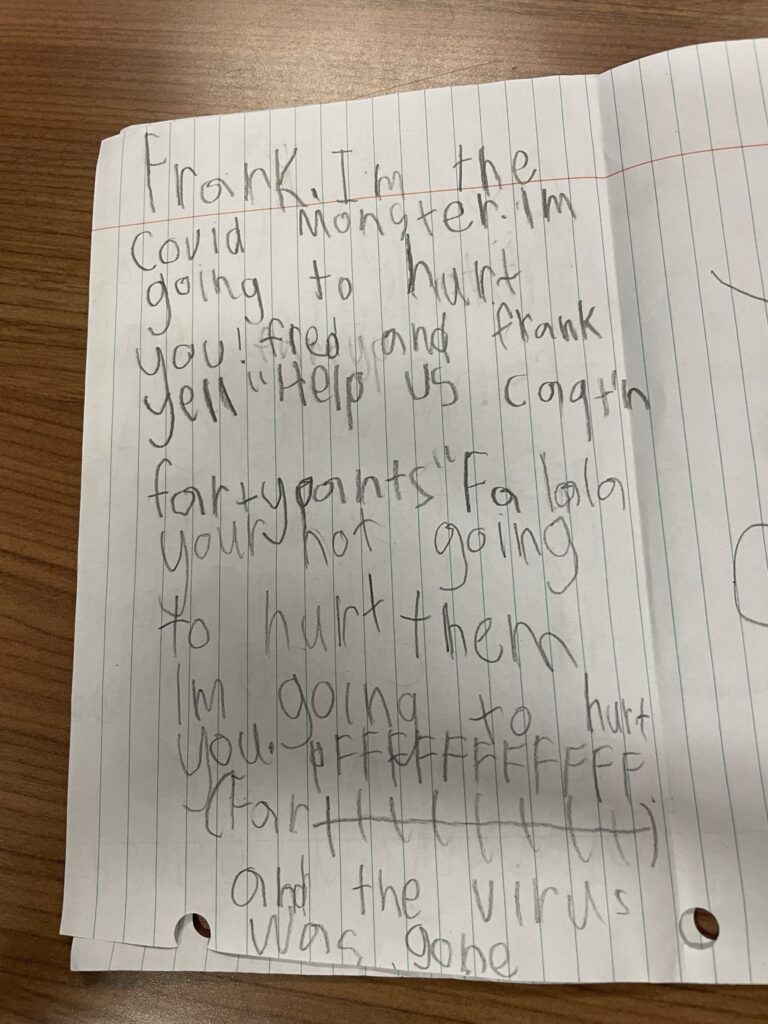 Frank. Im the
Covid Mongter. Im
going to hurt
you! fred and frank
yell "Help us Cagt'n
fartypants" Fa lala
your not going
to hurt them
Im going to hurt
you. pFFFFFFFFFFF
(Farttttttttt)
and the virus
was gone